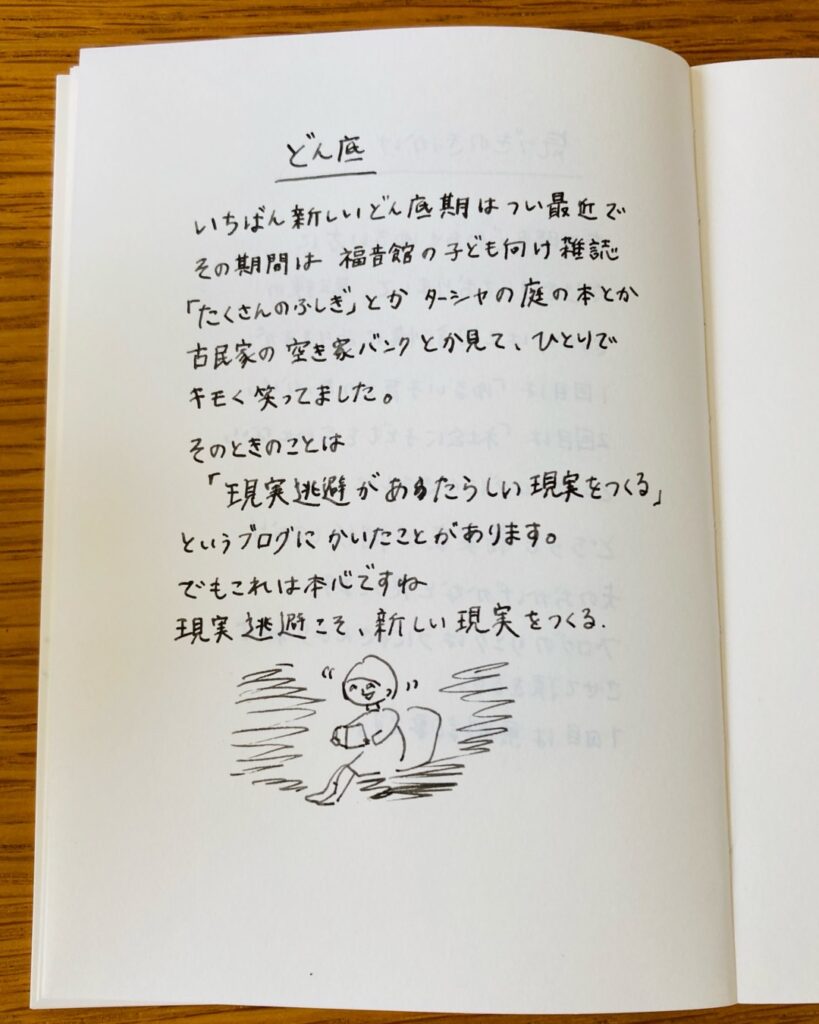 どん底
いちばん新しいどん底期はつい最近で
その期間は 福音館の子ども向け雑誌
「たくさんのふしぎ」とか ターシャの庭の本とか
古民家の空き家バンクとか見て、ひとりで
キモく笑ってました。
そのときのことは
「現実逃避があたらしい現実をつくる」
というブログに かいたことがあります。
でもこれは本心ですね
現実逃避こそ、新しい現実をつくる.